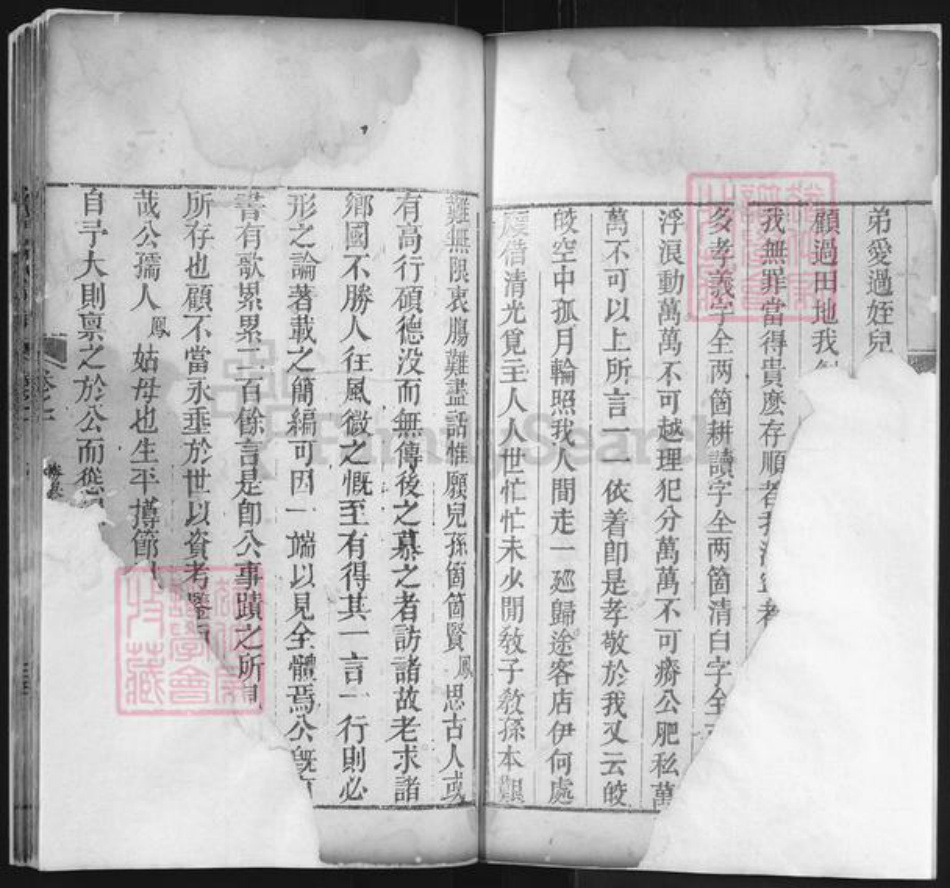 弟愛過姪兒
顧過田地我
我無罪當得貴麽存順者我
多孝義字全两箇耕讀字全两箇清白字全
浮浪動萬萬不可越理犯分萬萬不可瘠公肥私萬
萬不可以上所言一一依着卽是孝敬於我又云皎
皎空中孤月輪照我人間走一廵歸途客店伊何處
借清光覓主人人世忙忙未少閒敎子敎孫本艱
難無限衷膓難盡話惟願兒孫箇箇賢鳳思古人或
有高行碩德没而無傳後之慕之者訪諸故老求諸
鄉國不勝人往風微之慨至有得其一言一行則必
形之論著載之簡編可因一端以見全體焉公旣
書有歌累累二百餘言是卽公事蹟之所
所存也顧不當永垂於世以資考鑒
哉公孺人鳳姑母也生平撙節
自予大則禀之於公而
FamilySearch